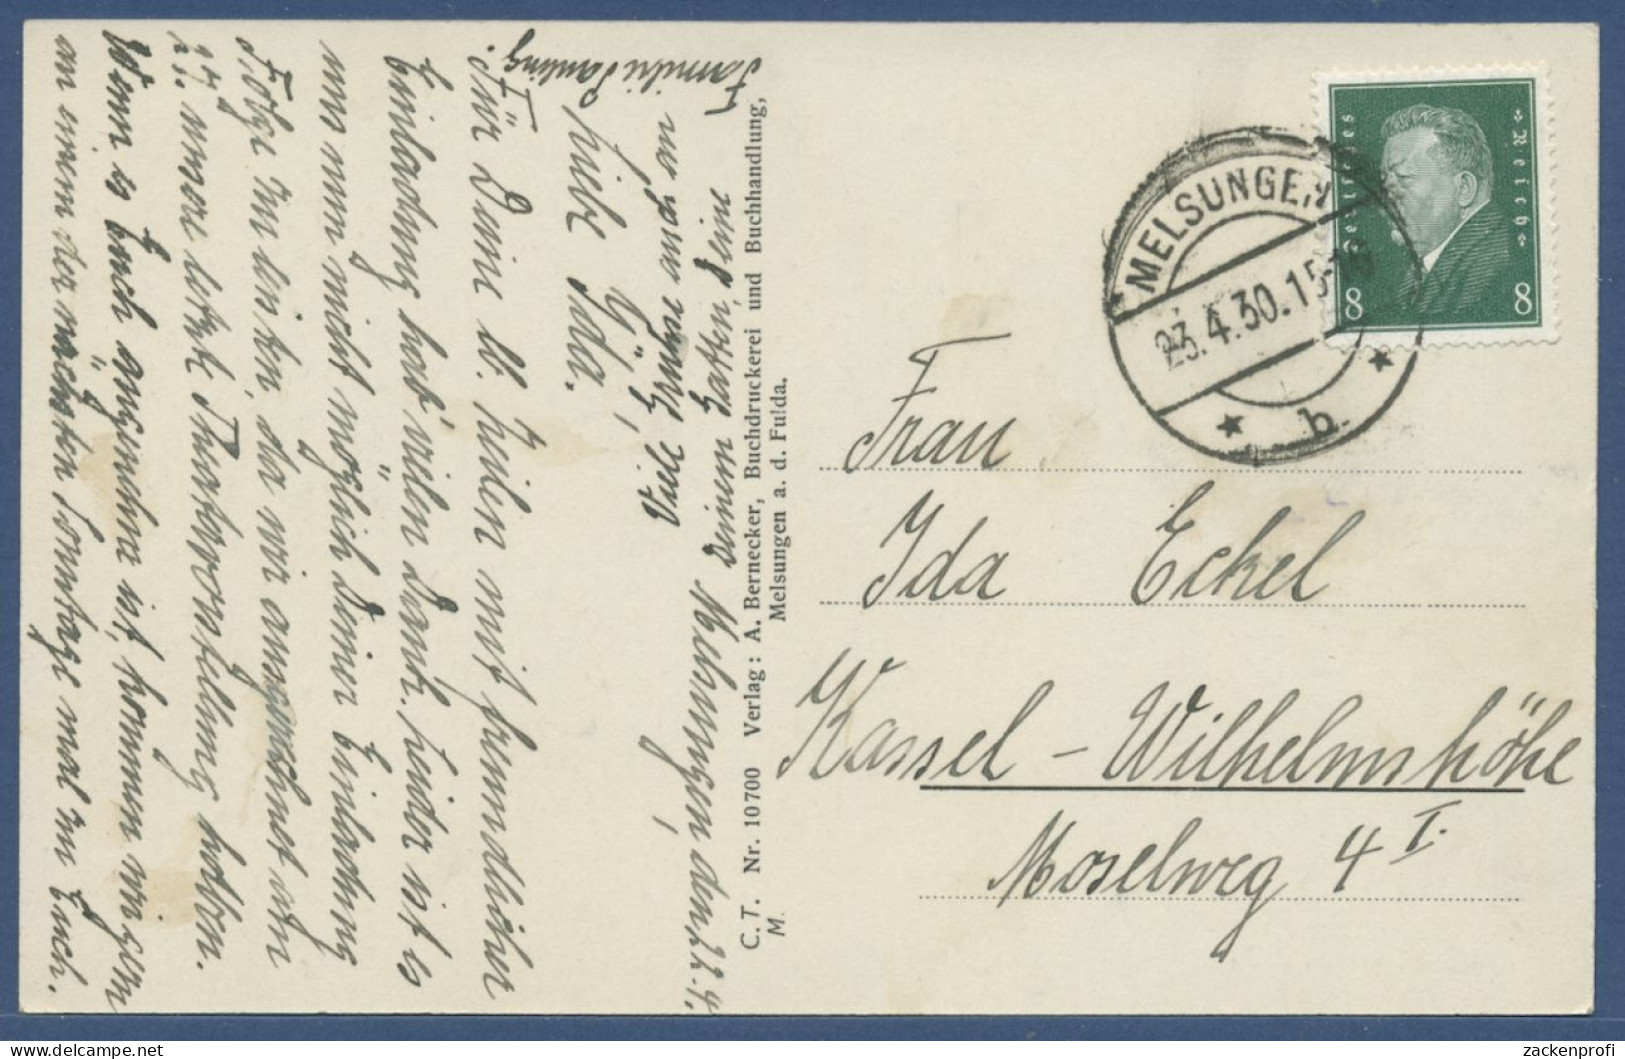 Melsungen, den 22.4.
Liebe Ida,
Für Deine lb. Zeilen mit freundlicher
Einladung hab' vielen Dank. Leider ist es
uns nun nicht möglich Deiner Einladung
Folge zu leisten, da wir ausgerechnet am
27. unsere letzte Theatervorstellung haben.
Wenn es Euch angenehm ist, kommen wir gern
an einem der nächsten Sonntage mal zu Euch.
Viele Grüße auch an
Deinen Gatten, Deine
Familie
C. T. Nr. 10700 Verlag: A. Bernecker, Buchdruckerei und Buchhandlung,
M. Melsungen a. d. Fulda.
MELSUNGEN
23.4.30.15
b.
Deutsches Reich
8 8
Frau
Ida Eckel
Kassel - Wilhelmshöhe
Moselweg 4 I.
zackenprofi
delcampe.net